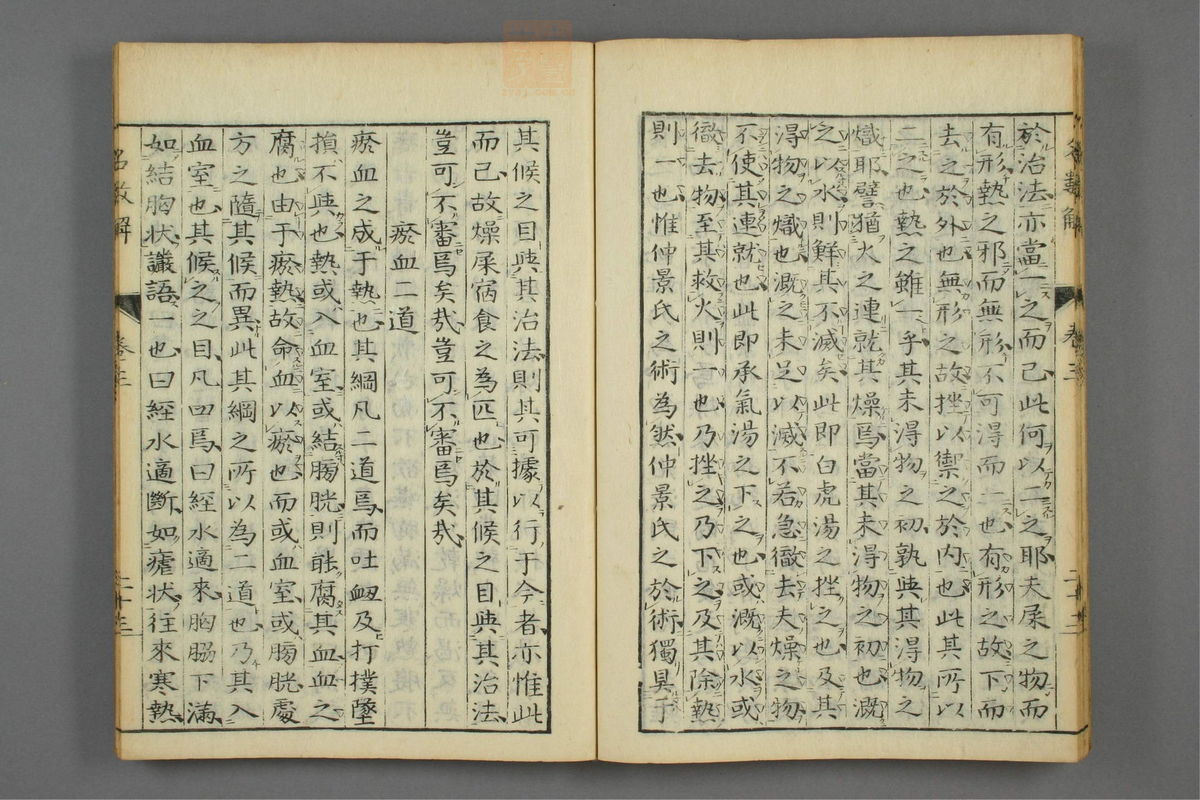 於治法亦當一之而已此何以二之耶夫屎之物而
有形熱之邪而無形不可得而一也有形之故下而
去之於外也無形之故挫以禦之於内也此其所以
二之也熱之雖一乎其未得物之初孰與其得物之
熾耶譬猶火之連就其燥焉當其未得物之初也溉
之以水則鮮其不滅矣此即白虎湯之挫之也及其
得物之熾也溉之未足以滅不若急徹去夫燥之物
不使其連就也此即承氣湯之下之也或溉以水或
徹去物至其救火則一也乃挫之乃下之及其除熱
則一也惟仲景氏之術為然仲景氏之於術獨昊于
其候之目與其治法則其可據以行于今者亦惟此
而已故燥屎宿食之為匹也於其候之目與其治法
豈可不審焉矣哉豈可不審焉矣哉
瘀血二道
瘀血之成于熱也其綱凡二道焉而吐衂及打撲墜
損不與也熱或入血室或結膓胱則能腐其血血之
腐也由于瘀熱故命血以瘀也而或血室或膓胱處
方之隨其候而異此其綱之所以為二道也乃其入
血室也其候之目凡四焉曰經水適來胸脇下滿
如結胸狀讝語一也曰經水適斷如瘧狀往來寒熱
名數解
卷三
二十三
名數解
卷三